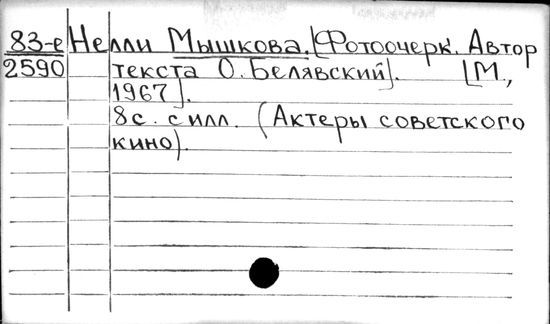 83-е Нелли Мышкова. [Фотоочерк. Автор
2590 текста О. Белявский]. [М.,
1967].
8 с. с илл. (Актеры советского
кино).